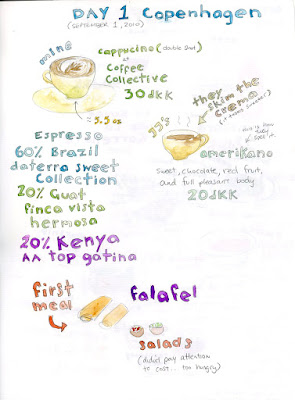 DAY 1 Copenhagen
(SEPTEMBER 1, 2010)
mine
cappucino (double shot)
at
Coffee
Collective
30 dKK
≈ 5.5 oz
JJ's
they skim the
crema
amerikano
sweet, chocolate, red fruit,
and full pleasant body
20DKK
Espresso
60% Brazil
daterra sweet
Collection
20% Guat
finca vista
hermosa
20% Kenya
AA top gatina
first
meal
falafel
salads
(didn't pay attention
to cost... too hungry)